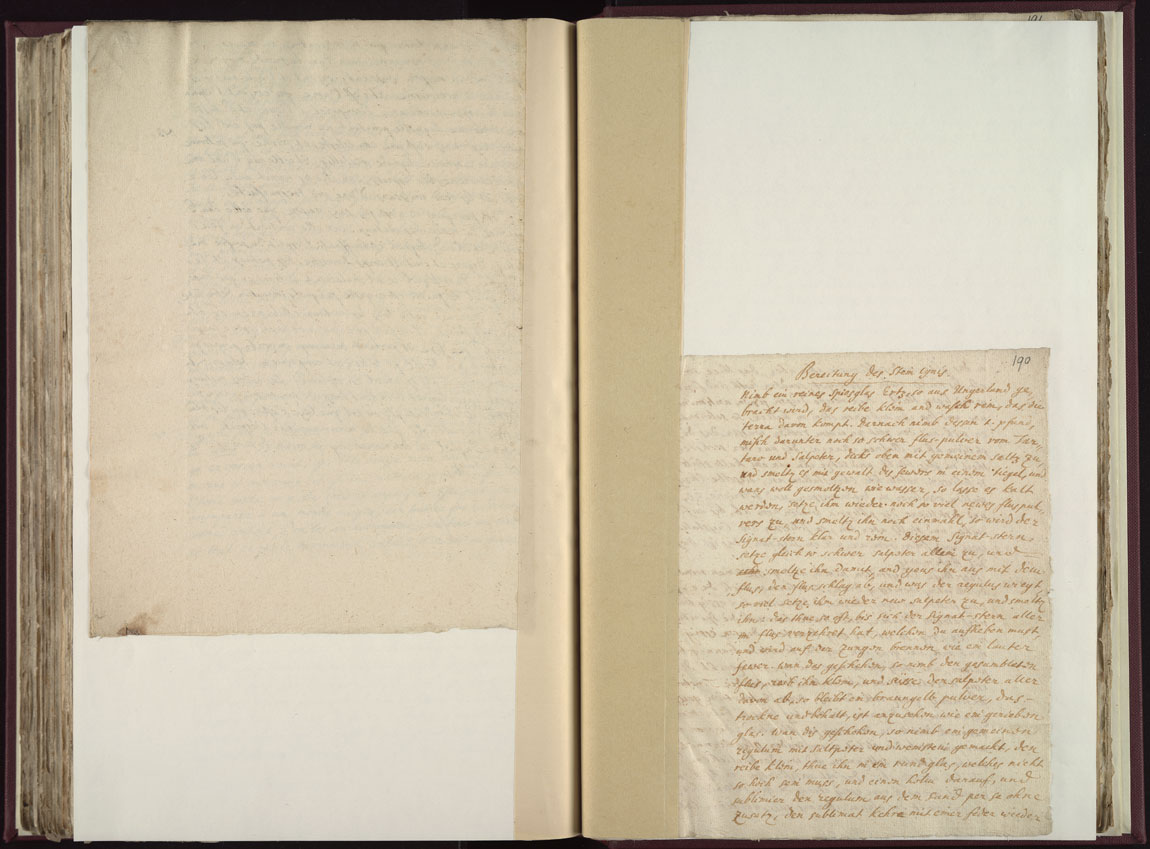 191
190
Bereitung des Stein ignis.
Nimb ein reines spiesglas Ertz, so aus Ungerland ge,
bracht wird, das reibe klein and wasch rein, das die
terra davon kompt. Dernach nimb dessen 1. pfund,
misch darunter noch so schwer flus-pulver vom Tar,
taro und Salpeter, decks oben mit gemeinem Saltz zu
und smeltz es mit gewalt des fewers in einem tiegel, und
wans woll gesmoltzen wie wasser, so lasse es kalt
werden, setze ihm wieder noch so viel newes flus pul,
vers zu, und smeltz ihn noch einmahl, so wird der
signat-stern klar und rein. Diesem signat-stern,
setze gleich so schwer salpeter allein zu, und
smeltze ihn damit, and geus ihn aus mit dem
flus, den flus schlag ab, und was der regulus wiegt,
so viel setze ihm wieder new salpeter zu, und smeltz
ihn: das thue so oft, bis sich der signat-stern aller
in flus verzehret hat, welchen du aufheben must
und wird auf der zungen brennen, wie ein lauter
fewer. wan das geschehen, so nimb den gesambleten
flus, reib ihn klein, und süsse den salpeter aller
davon ab, so bleibt ein braungelb pulver, das
trockne und behalt, ist anzusehen wie ein gerieben
glas. wan dis geschehen, so nimb ein gemeinen
regulum mit Saltpeter und weinstein gemacht, den
reibe klein, thue ihn in ein rundglas, welches nicht
so hoch sein muss, und einen helm darauf, und
sublimier den regulum aus dem sand per se ohne
zusatz, den sublimat kehre mit einer feder wieder